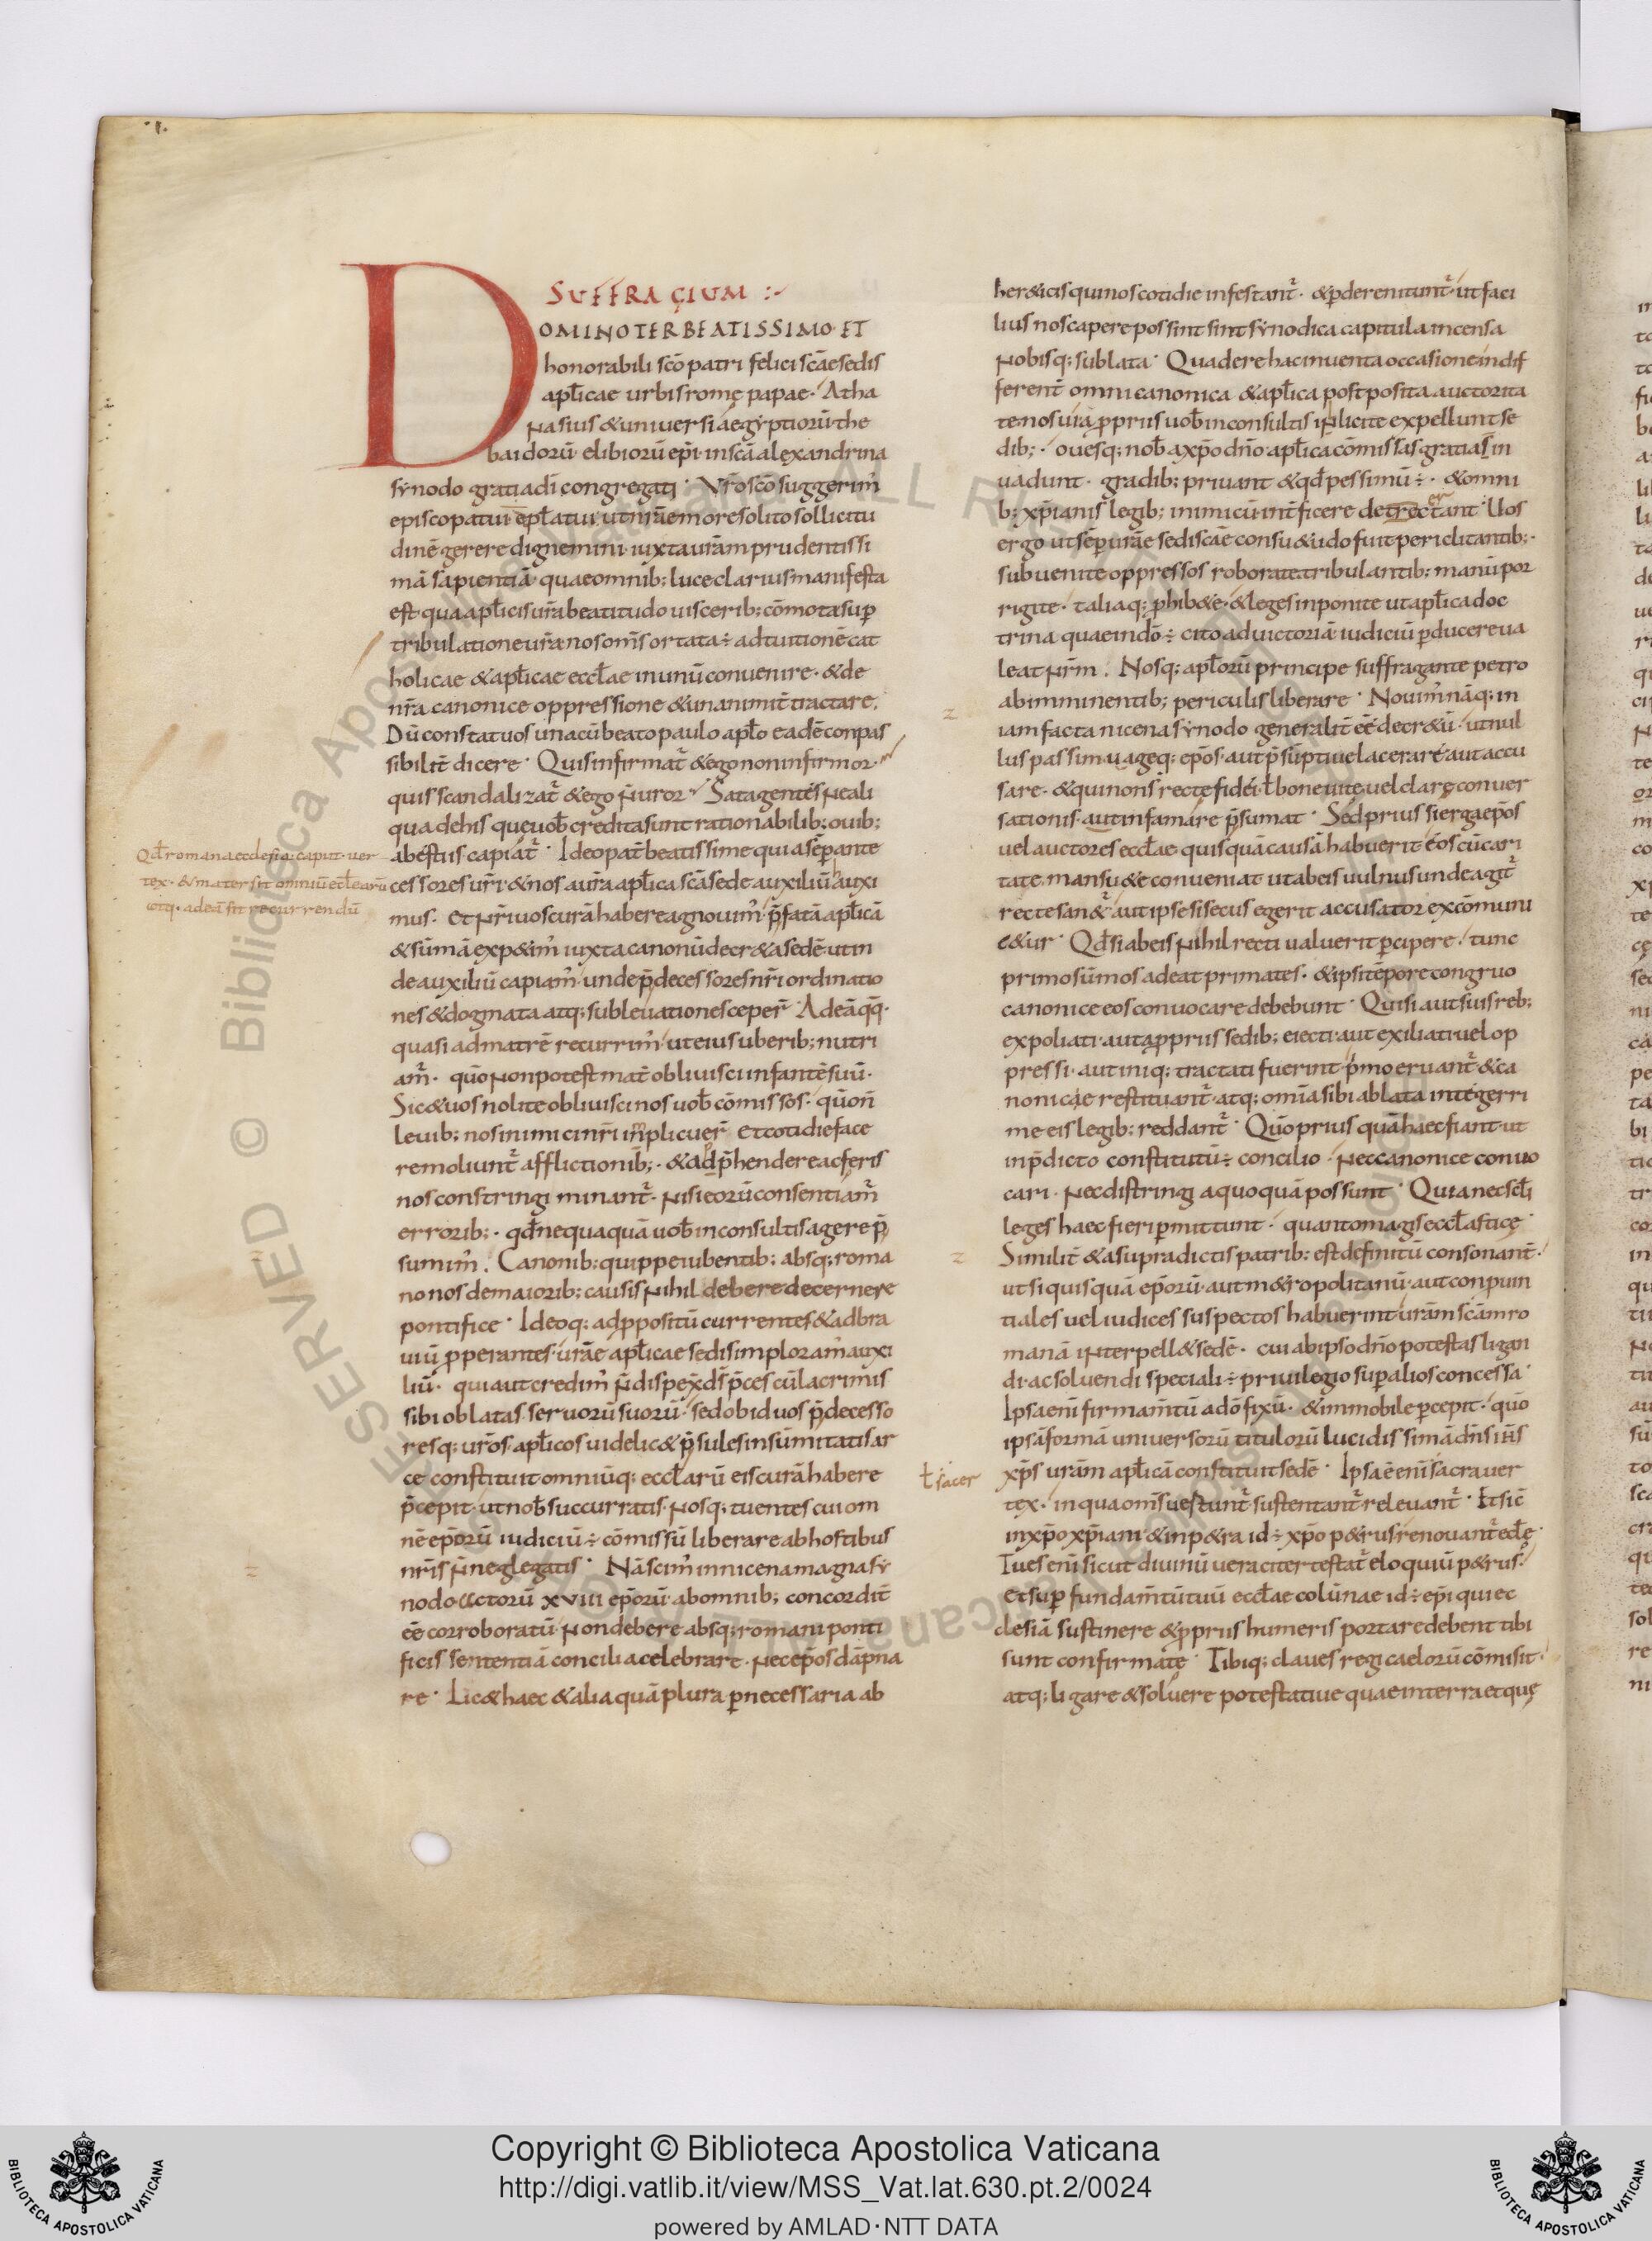 SUFFRAGIUM :~
DOMINO TER BEATISSIMO ET
honorabili scō patri felici scāe sedis
apl̄icae urbis romę papae. Atha
nasius & uniuersi aegyptiorū the
baidorū & libiorū epī in scā alexandrina
synodo gratia dī congregati. Vr̄o scō suggerim'
episcopatui ut nr̄ae more solito sollicitu
dinē gerere dignemini iuxta ur̄am prudentissi
mā sapientiā quae omnib; luce clarius manifesta
est qua apl̄icis ur̄a beatitudo uiscerib; cōmota sup
tribulatione ur̄a nos om̄s ortata ÷ ad tuitionē cat
holicae & apl̄icae eccl̄ae in unū conuenire. & de
nr̄a canonice oppressione & unanimit̄ tractare.
Dū constat uos una cū beato paulo apl̄o eadē conpas
sibilit̄ dicere. Quis infirmat' & ego non infirmor.
quis scandalizat' & ego n̄ uror. Satagentes neali
qua de his quę uob̄ credita sunt rationabilib; ouib;
abestiis capiat'. Ideo pat̄ beatissime quia sēp ante
cessores ur̄i & nos a ur̄a apl̄ica scā sede auxiliū auxi
mus. Et nr̄i uos curā habere agnouim' p̄fatā apl̄icā
& sūmā exp&im' iuxta canonū decr&a sedē ut in
de auxiliū capiam' unde p̄decessores nr̄i ordinatio
nes & dogmata atq; subleuationes ceper̄. Ad eā q̄q̄.
quasi ad matrē recurrim' ut eius uberib; nutri
am'. quō non potest mat̄ obliuisci infantē suū.
Sic & uos nolite obliuisci nos uob̄ cōmissos. quon̄
leuib; nos inimici nr̄i implicuer̄ Et cotidie face
re moliunt' afflictionib;. & adp̄hendere ac feris
nos constringi minant'. nisi eorū consentiam'
errorib;. qd̄ nequaquā uob̄ inconsultis agere p̄
sumim'. Canonib; quippe iubentib; absq; roma
no nos de maiorib; causis nihil debere decernere
pontifice. Ideoq; ad ppositū currentes & ad bra
uiū pperantes. ur̄ae apl̄icae sedis imploram' auxi
liū. quia ut credim' n̄ dispex d̄s p̄ces cū lacrimis
sibi oblatas seruorū suorū. sed ob id uos p̄decesso
resq; ur̄os apl̄icos uidelic& p̄sules in sūmitatis ar
ce constituit omniūq; eccl̄arū eis curā habere
p̄cepit. ut nob̄ succurratis. nosq; tuentes cui om
nē epōrū iudiciū ÷ cōmissū liberare ab hostibus
nr̄is n̄ neglegatis. Nā scim' in nicena magna sy
nodo ccctorū xviii epōrū ab omnib; concordit̄
eē corroboratū. Non debere absq; romani ponti
ficis sententiā concilia celebrare. nec epōs dāpna
re. Lic& haec & alia quā plura pnecessaria ab
Qd̄ romana ecclesia caput uer
tex. & mater sit omniū eccl̄earū
atq. ad eā sit recurrendū
her&icis qui nos cotidie infestant'. & pdere nitunt' ut faci
lius nos capere possint sint synodica capitula incensa
nobisq; sublata. Qua de re hac inuenta occasione indif
ferent̄ omni canonica & apl̄ica postposita auctorita
te nos uiā ppriis uob̄ inconsultis inlicite expellunt se
dib;. ouesq; nob̄ a xp̄o dn̄o apl̄ica cōmissas gratias in
uadunt. gradib; priuant & qd̄ pessimū ÷. & omni
b; xp̄ianis legib; inimicū int̄ficere detrectant. Uos
er
ergo ut sēp ur̄ae sedis scāe consu&udo fuit periclitantib;.
subuenite oppressos roborate tribulantib; manū por
rigite. taliaq; phib&e. & leges inponite ut apl̄ica doc
trina quae in dō ÷ cito ad uictoriā iudiciū pducere ua
leat nr̄m. Nosq; apl̄orū principe suffragante petro
ab imminentib; periculis liberare. Nouim' nāq; in
iam facta nicena synodo generalit̄ eē decr&ū. ut nul
lus passim uageq; epōs. aut p̄sūptiue lacerare aut accu
sare. & qui non s̄ recte fidei. ł bone uite uel clarę conuer
sationis. aut infamare p̄sumat. Sed prius si erga epōs
uel auctores eccl̄ae quisquā causā habuerit eos cū cari
tate mansu&e conueniat ut ab eis uulnus unde agit'
recte san&' aut ipse si secus egerit accusator excōmuni
c&ur. Qd̄ si ab eis nihil recti ualuerit pcipere. tunc
primo sūmos adeat primates. & ipsi tēpore congruo
canonice eos conuocare debebunt. Qui si aut suis reb;
expoliati. aut a ppriis sedib; eiecti aut exiliati uel op
pressi. aut iniq; tractati fuerint p̄mo eruant' & ca
nonicae restituant' atq; omīa sibi ablata integerri
me eis legib; reddant'. Quō prius quā haec fiant. ut
in p̄dicto constitutū ÷ concilio. nec canonice conuo
cari. nec distringi a quoquā possunt. Quia nec scl̄i
leges haec fieri pmittunt. quanto magis eccl̄asticę.
Similit̄ & a supradictis patrib; est definitū consonant̄.
ut si quisquā epōrū. aut m&ropolitanū. aut conpuin
tiales uel iudices suspectos habuerint. ur̄am scām ro
manā interpell& sedē. cui ab ipso dn̄o potestas ligan
di ac soluendi speciali ÷ priuilegio sup alios concessa.
Ipsa eni firmam̄tū a dō fixū. & immobile pcepit. quō
ipsā formā uniuersorū titulorū lucidissimā dn̄s ih̄s
xp̄s ur̄am apl̄icā constituit sedē. Ipsa ē eni sacra uer
ł sacer
tex. in qua om̄s uestunt' sustentant' releuant'. Et sic̄
in xp̄o xp̄iani & in p&ra id ÷ xp̄o p&rus renouant' ecl̄ę.
Tu es eni sicut diuinū ueraciter testat' eloquiū p&rus.
Et sup fundam̄tū tuū eccl̄ae colūnae id ÷ epī qui ec
clesiā sustinere & ppriis humeris portare debent tibi
sunt confirmatę. Tibiq; claues regi caelorū cōmisit.
atq; ligare & soluere potestatiue quae in terra et quę
Copyright © Biblioteca Apostolica Vaticana
http://digi.vatlib.it/view/MSS_Vat.lat.630.pt.2/0024
powered by AMLAD·NTT DATA
BIBLIOTECA APOSTOLICA VATICANA
BIBLIOTECA APOSTOLICA VATICANA